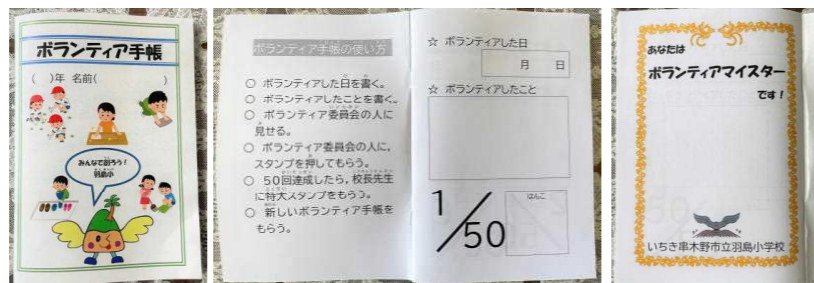 ボランティア手帳
( )年 名前( )
みんなで創ろう!
羽島小
ボランティア手帳の使い方
○ ボランティアした日を書く。
○ ボランティアしたことを書く。
○ ボランティア委員会の人に
見せる。
○ ボランティア委員会の人に,
スタンプを押してもらう。
○ 50回達成したら,校長先生
に特大スタンプをもらう。
○ 新しいボランティア手帳を
もらう。
☆ ボランティアした日
月 日
☆ ボランティアしたこと
1/50
はんこ
あなたは
ボランティアマイスター
です!
いちき串木野市立羽島小学校